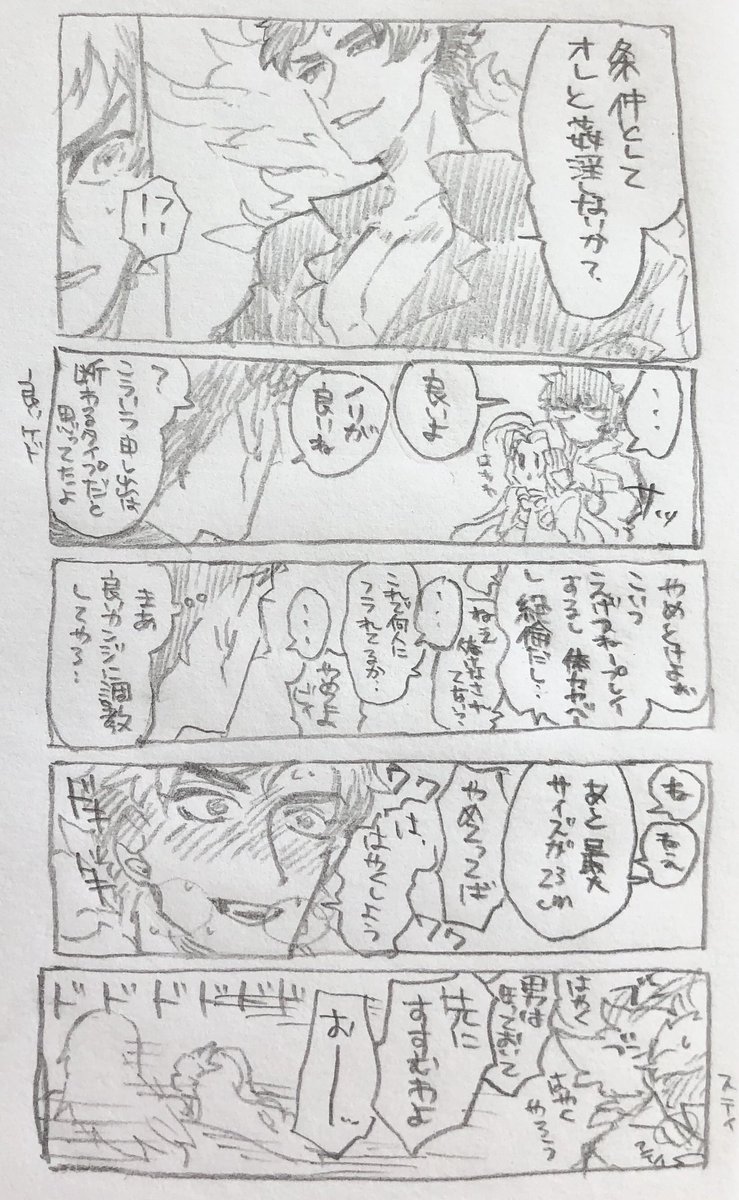 条件として
オレと姦淫しないかって、
!?
・・・
サッ
良いよ
ノリが
良いね
?
こういう申し出は
断わるタイプだと
思ってたよ
やめとけよ
こいつ
するし
し絶倫だし…
・・・
ねえ
これで何人に
フラれてるか…
・・・
やめなよ
まあ
良いカンジに調教
してやろ…
ね
ねえ
あと最大
サイズが23cm
やめろってば
は、
はやくしよう
ワクワク
ワクワク
ドキドキ
ドキドキ
はやく
男は
ほっておいて
はやく
やろう
先に
すすむわよ
おーーッ
ドドドドドドド